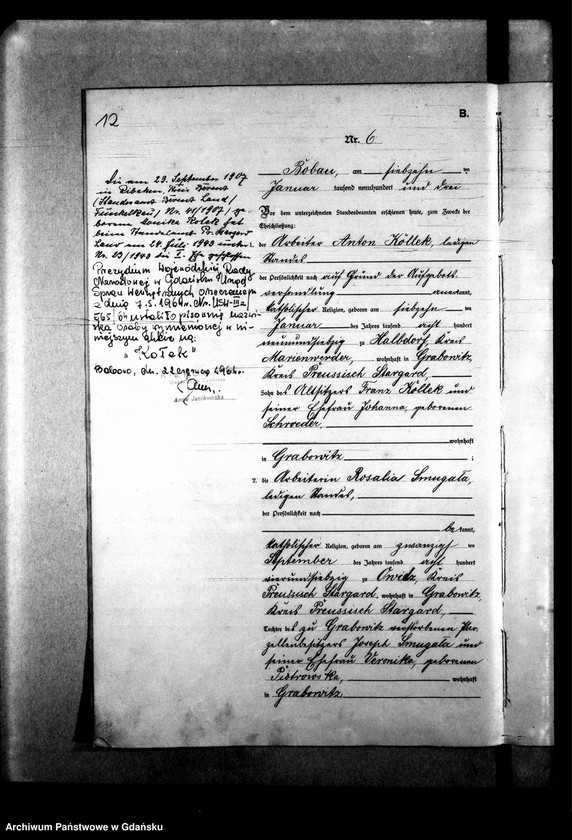 12
B.
Nr. 6
Die am 23. September 1907
in Ribaken, Kreis Berent
(Standesamt Berent Land/
Funkelkau/ Nr. 41/1907/ ge-
borene Monika Kolek hat
beim Standesamt Pr. Stargard
Land am 24. Juli 1943 unter
Nr. 23/1943 die I. Ehe geschlossen
Prezydium Wojewódzkiej Rady
Narodowej w Gdańsku Urząd
Spraw Wewnętrznych orzeczeniem
z dnia 7.5.1964 r. Nr. USW-III
/64 ustaliło pisownię nazwi-
ska osoby wymienionej w ni-
niejszym akcie na:
"Kołek"
Bobowo, dn. 22 czerwca 1964 r.
Bobau, am siebzehn ten
Januar tausend neunhundert und drei
Vor dem unterzeichneten Standesbeamten erschienen heute, zum Zwecke der
Eheschließung:
der Arbeiter Anton Kollek, ledigen
Standes
der Persönlichkeit nach auf Grund der Aufgebots-
verhandlung kannt,
katholischer Religion, geboren am siebzehn ten
Januar des Jahres tausend acht hundert
neunundsiebzig zu Halbdorf, Kreis
Marienwerder, wohnhaft in Grabowitz,
Kreis Preussisch Stargard,
Sohn des Altsitzers Franz Kollek und
seiner Ehefrau Johanna, geborenen
Schroeder,
wohnhaft
in Grabowitz ;
2. die Arbeiterin Rosalia Smugala,
ledigen Standes,
der Persönlichkeit nach
be kannt,
katholischer Religion, geboren am zwanzigsten
September des Jahres tausend acht hundert
vierundsiebzig zu Owidz, Kreis
Preussisch Stargard, wohnhaft in Grabowitz,
Kreis Preussisch Stargard,
Tochter des zu Grabowitz verstorbenen Par-
zellenbesitzers Joseph Smugala und
seiner Ehefrau Veronika, geborenen
Piotrowska, wohnhaft
in Grabowitz
Archiwum Państwowe w Gdańsku